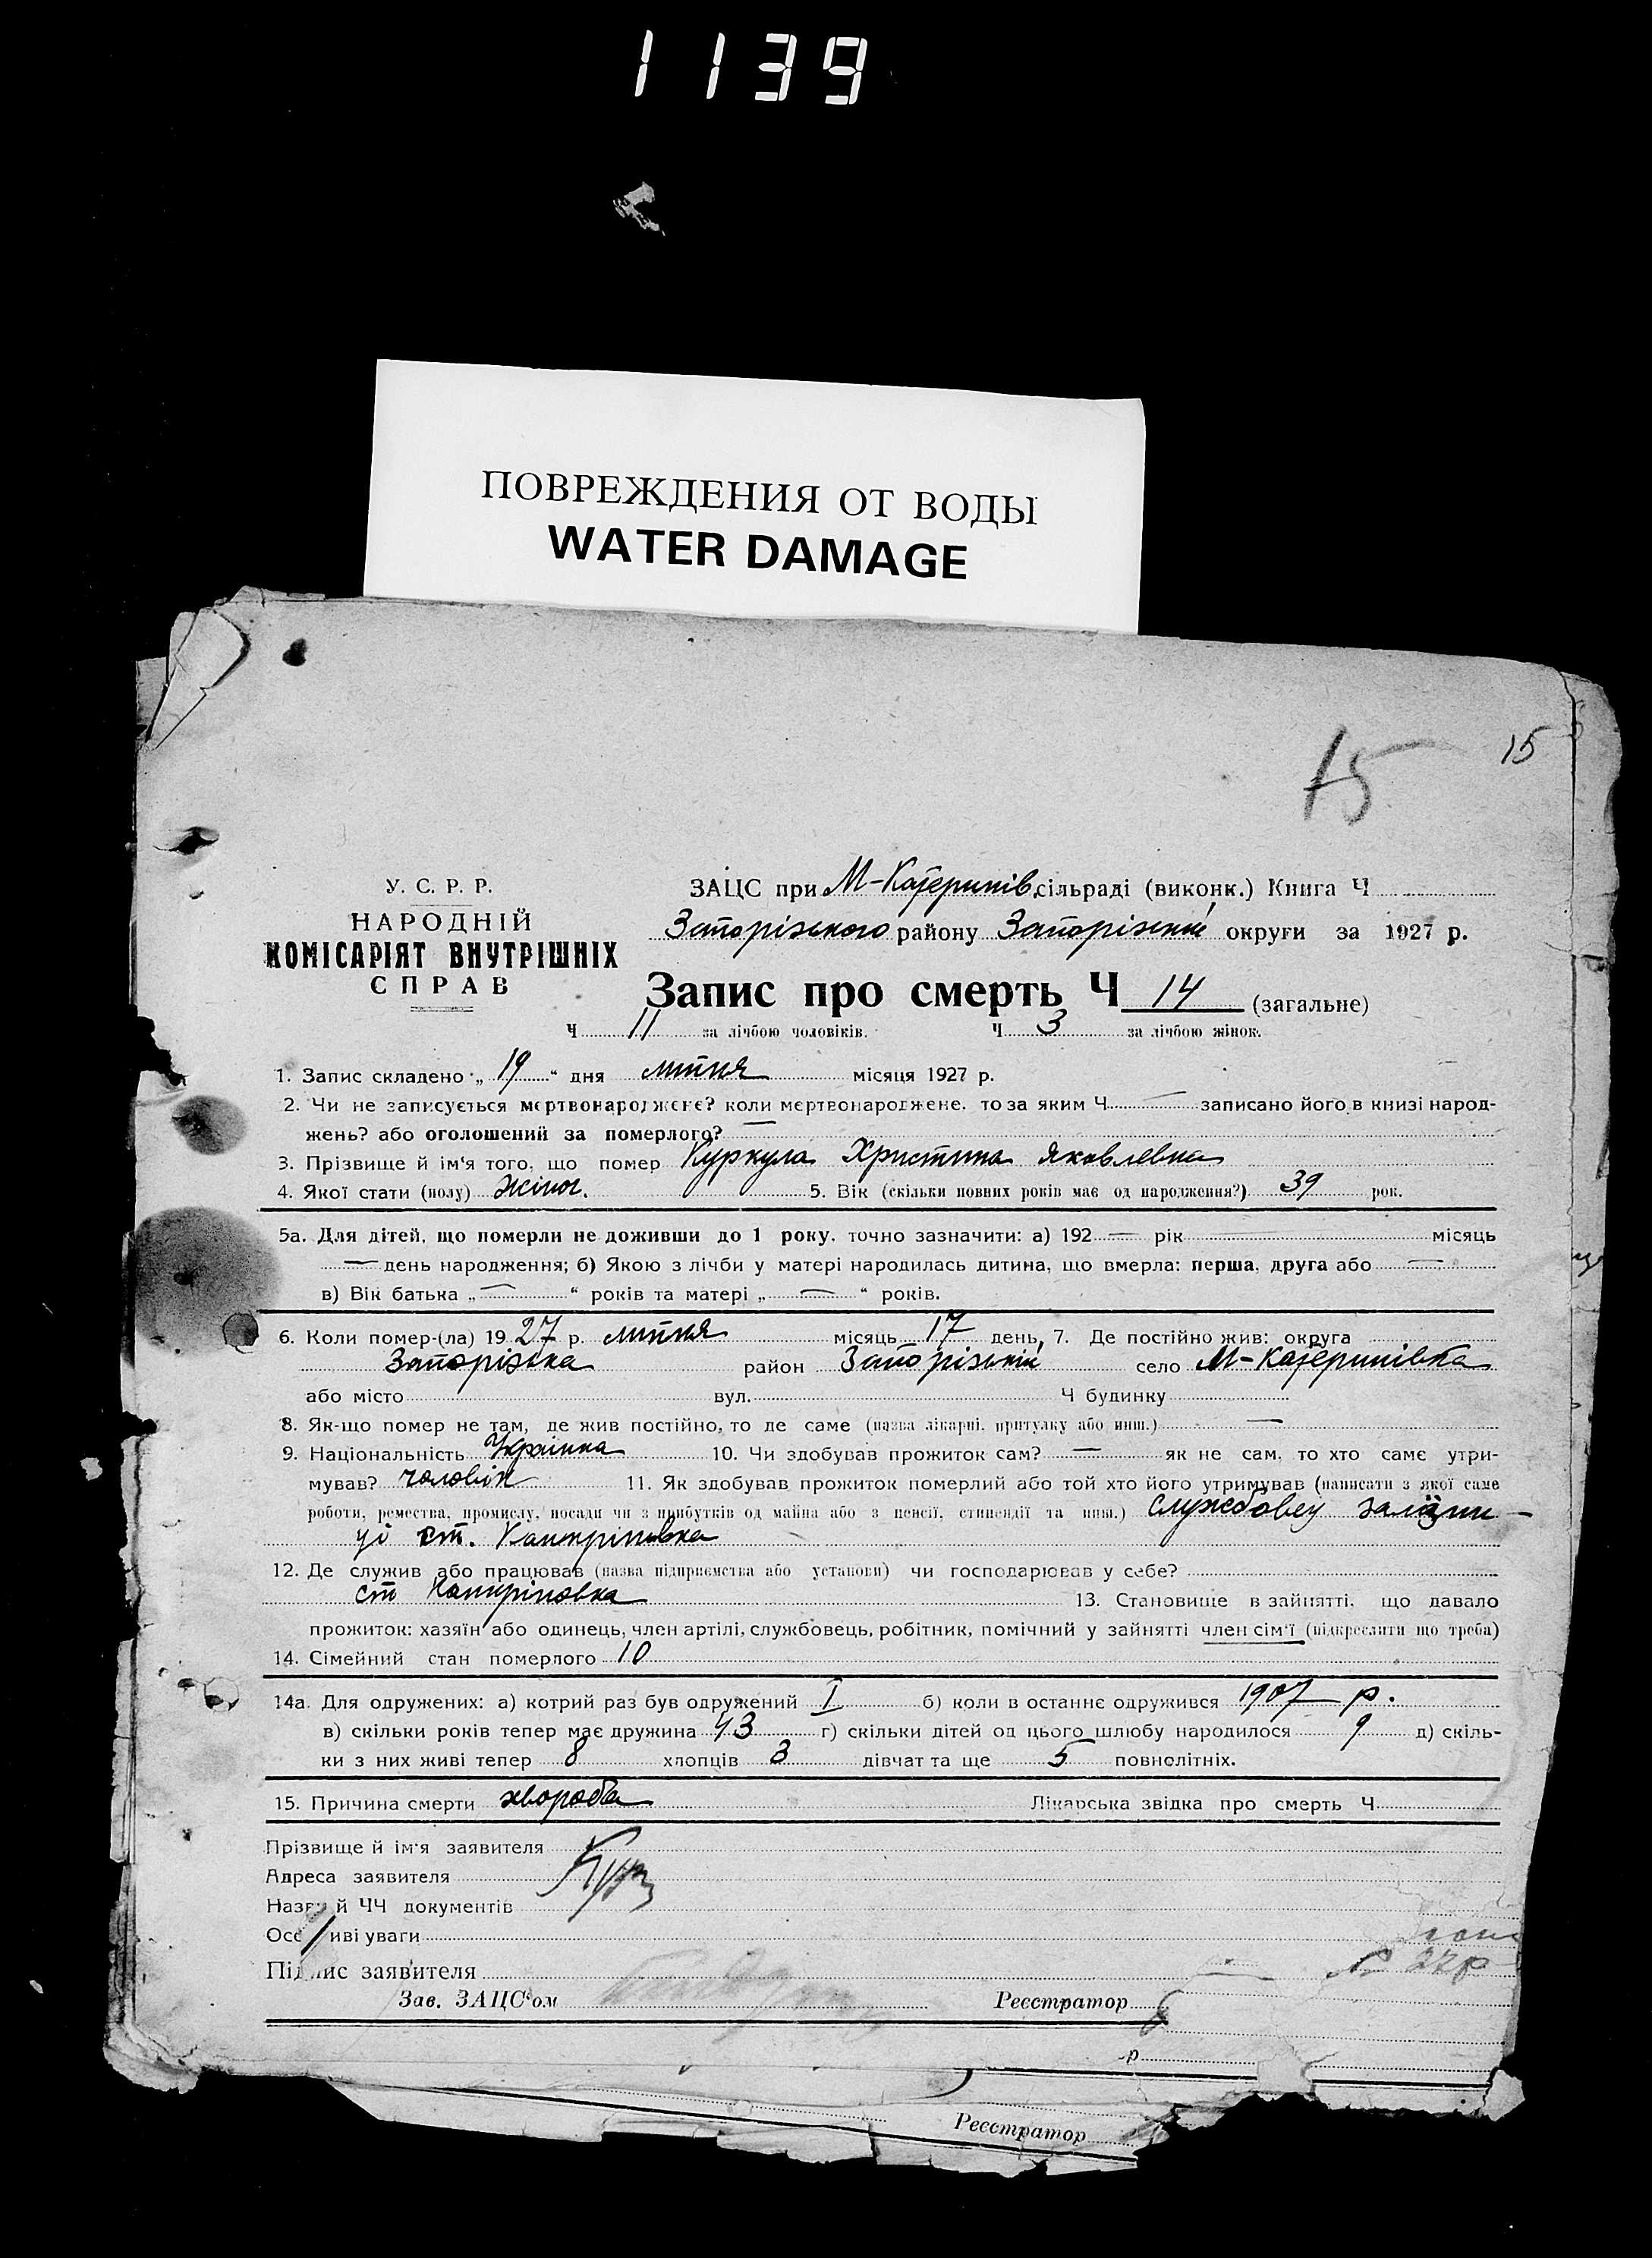 1139
ПОВРЕЖДЕНИЯ ОТ ВОДЫ
WATER DAMAGE
15 15
У. С. Р. Р.
НАРОДНІЙ
КОМІСАРІЯТ ВНУТРІШНІХ
СПРАВ
ЗАЦС при М-Катеринів. сільраді (виконк.) Книга Ч
Запорізького району Запорізької округи за 1927 р.
Запис про смерть Ч 14 (загальне)
Ч 11 за лічбою чоловіків. Ч 3 за лічбою жінок.
1. Запис складено „ 19 “ дня липня місяця 1927 р.
2. Чи не записується мертвонароджене? коли мертвонароджене, то за яким Ч — записано його в книзі народ-
жень? або оголошений за померлого? —
3. Прізвище й ім‘я того, що помер Куркула Христина Яковлевна
4. Якої стати (полу) жіноч. 5. Вік (скільки повних років має од народження?) 39 рок.
5а. Для дітей, що померли не доживши до 1 року, точно зазначити: а) 192 — рік — місяць
— день народження; б) Якою з лічби у матері народилась дитина, що вмерла: перша, друга або —
в) Вік батька „ — “ років та матері „ — “ років.
6. Коли помер-(ла) 19 27 р. липня місяць 17 день, 7. Де постійно жив: округа
Запорізька район Запорізький село М-Катеринівка
або місто вул. Ч будинку
8. Як-що помер не там, де жив постійно, то де саме (назва лікарні, притулку або инш.) —
9. Національність Українка 10. Чи здобував прожиток сам? — як не сам, то хто саме утри-
мував? чоловік 11. Як здобував прожиток померлий або той хто його утримував (написати з якої саме
роботи, ремества, промислу, посади чи з прибутків од майна або з пенсії, стипендії та инш.) службовец залізни-
ці ст.
12. Де служив або працював (назва підприємства або установи) чи господарював у себе?
ст
13. Становище в зайнятті, що давало
прожиток: хазяїн або одинець, член артілі, службовець, робітник, помічний у зайнятті член сім‘ї (підкреслити що треба)
14. Сімейний стан померлого 10
14а. Для одружених: а) котрий раз був одружений I б) коли в останнє одружився 1907 р.
в) скільки років тепер має дружина 43 г) скільки дітей од цього шлюбу народилося 9 д) скіль-
ки з них живі тепер 8 хлопців 3 дівчат та ще 5 повнолітніх.
15. Причина смерти хвороба Лікарська звідка про смерть Ч
Прізвище й ім‘я заявителя
Адреса заявителя
Назви й ЧЧ документів
Особливі уваги
Підпис заявителя
27 р
Зав. ЗАЦС‘ом Реєстратор
р
Реєстратор